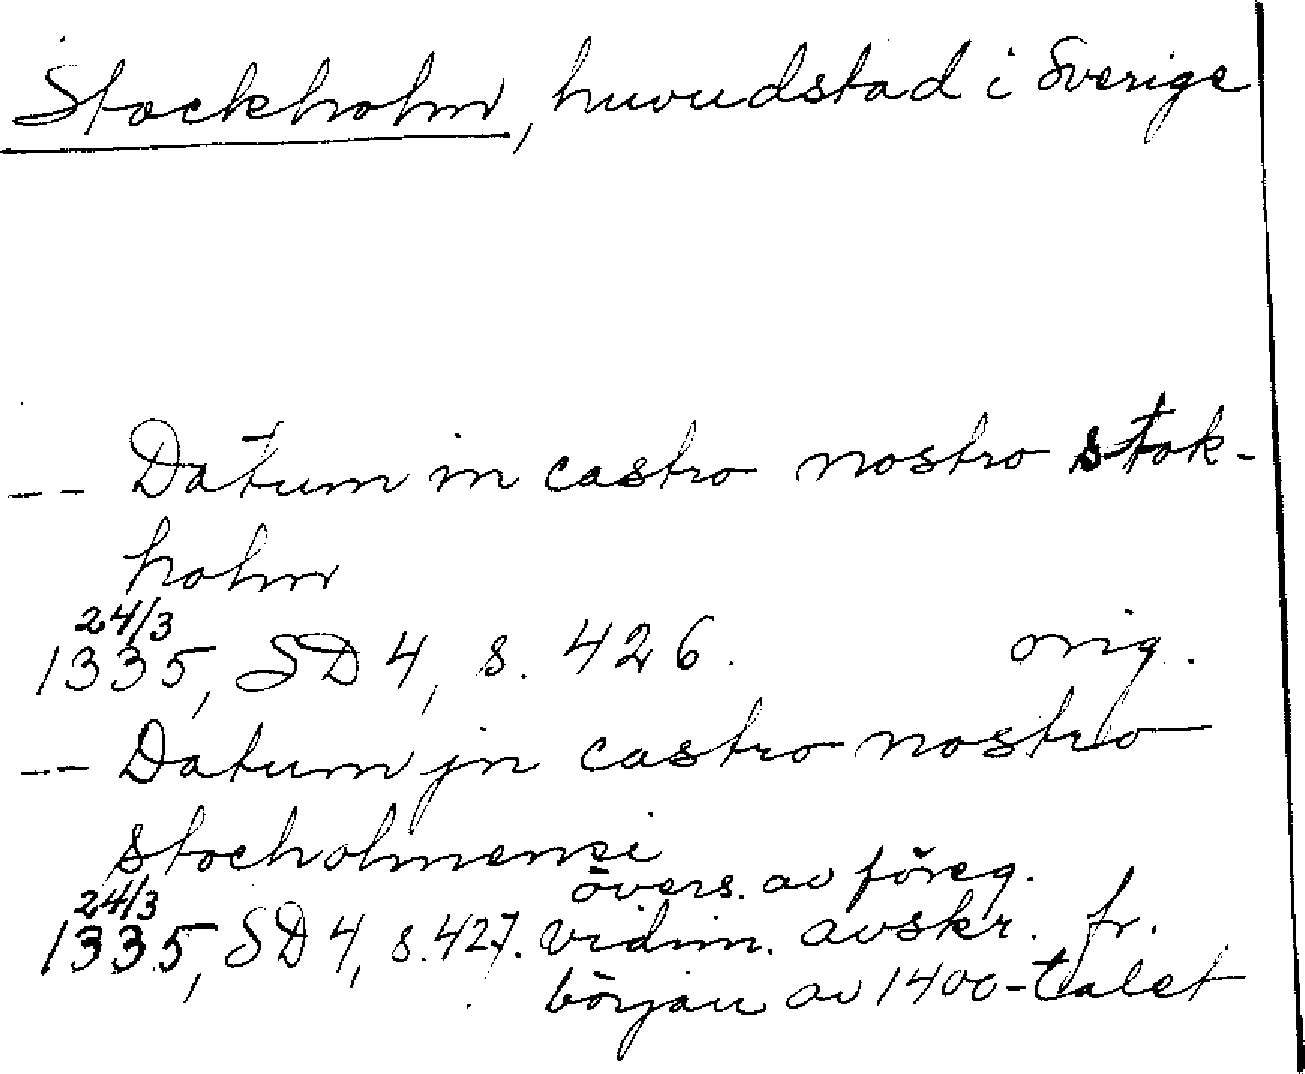 Stockholm, huvudstad i Sverige
-- Datum in castro nostro stok-
holm
24/3
1335, SD 4, s. 426. orig.
-- Datum jn castro nostro
stocholmensi
övers. av föreg.
24/3
1335, SD 4, s. 427. vidim. avskr. fr.
början av 1400-talet